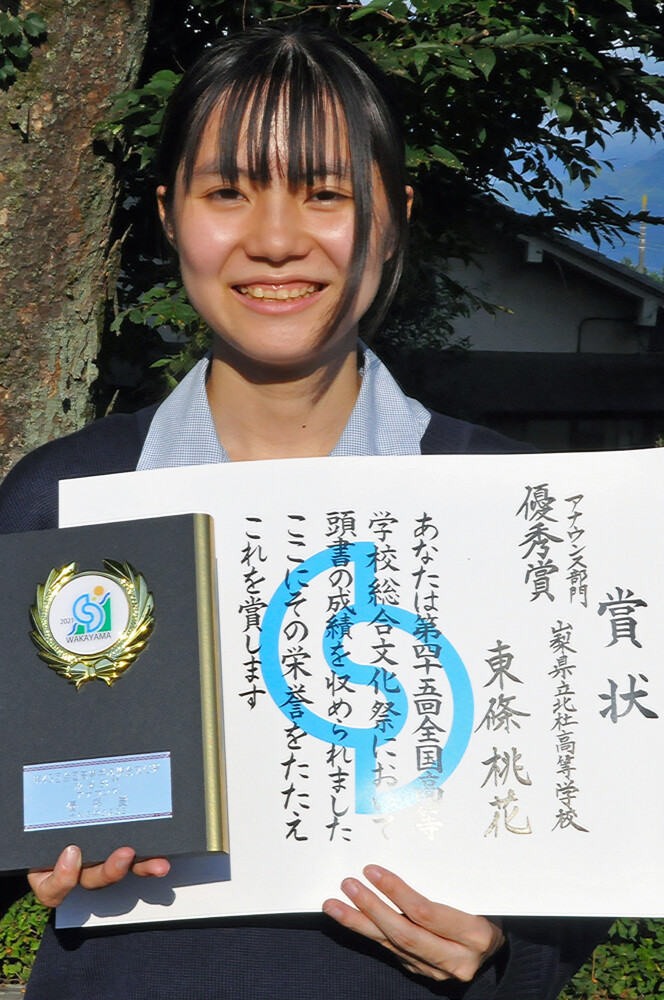 賞状
アナウンス部門
優秀賞
山梨県立北杜高等学校
東條桃花
あなたは第四十五回全国高等
学校総合文化祭において
頭書の成績を収められました
ここにその栄誉をたたえ
これを賞します
2021
WAKAYAMA